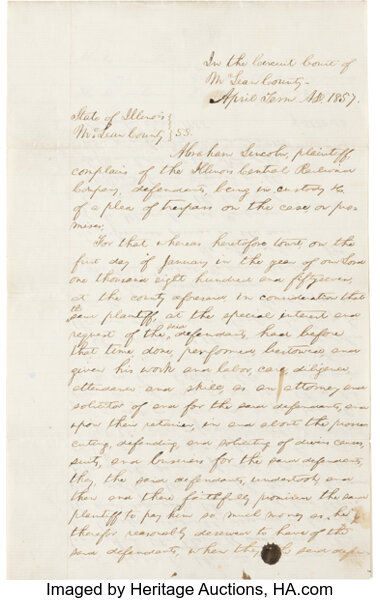 In the Circuit Court of
McLean County.
April Term AD. 1857.
State of Illinois
McLean County } SS.
Abraham Lincoln, plaintiff,
complains of the Illinois Central Railroad
Company, defendants, being in custody &c
of a plea of trespass on the case on pro-
mises;
For that whereas heretofore towit, on the
first day of January in the year of our Lord
one thousand eight hundred and fifty seven,
at the county aforesaid in consideration that
the said plaintiff, at the special instance and
request of the said defendants, had before
that time done, performed bestowed and
given his work and labor, care diligence
attendance and skill, as an attorney and
solicitor of and for the said defendants, and
upon their retainer, in and about the prose-
cuting, defending, and soliciting of divers causes,
suits, and business for the said defendants,
they, the said defendants, undertook, and
then and there faithfully promised the said
plaintiff to pay him so much money as he
therefor reasonably deserved to have of the
said defendants, when they the said defen-
Imaged by Heritage Auctions, HA.com